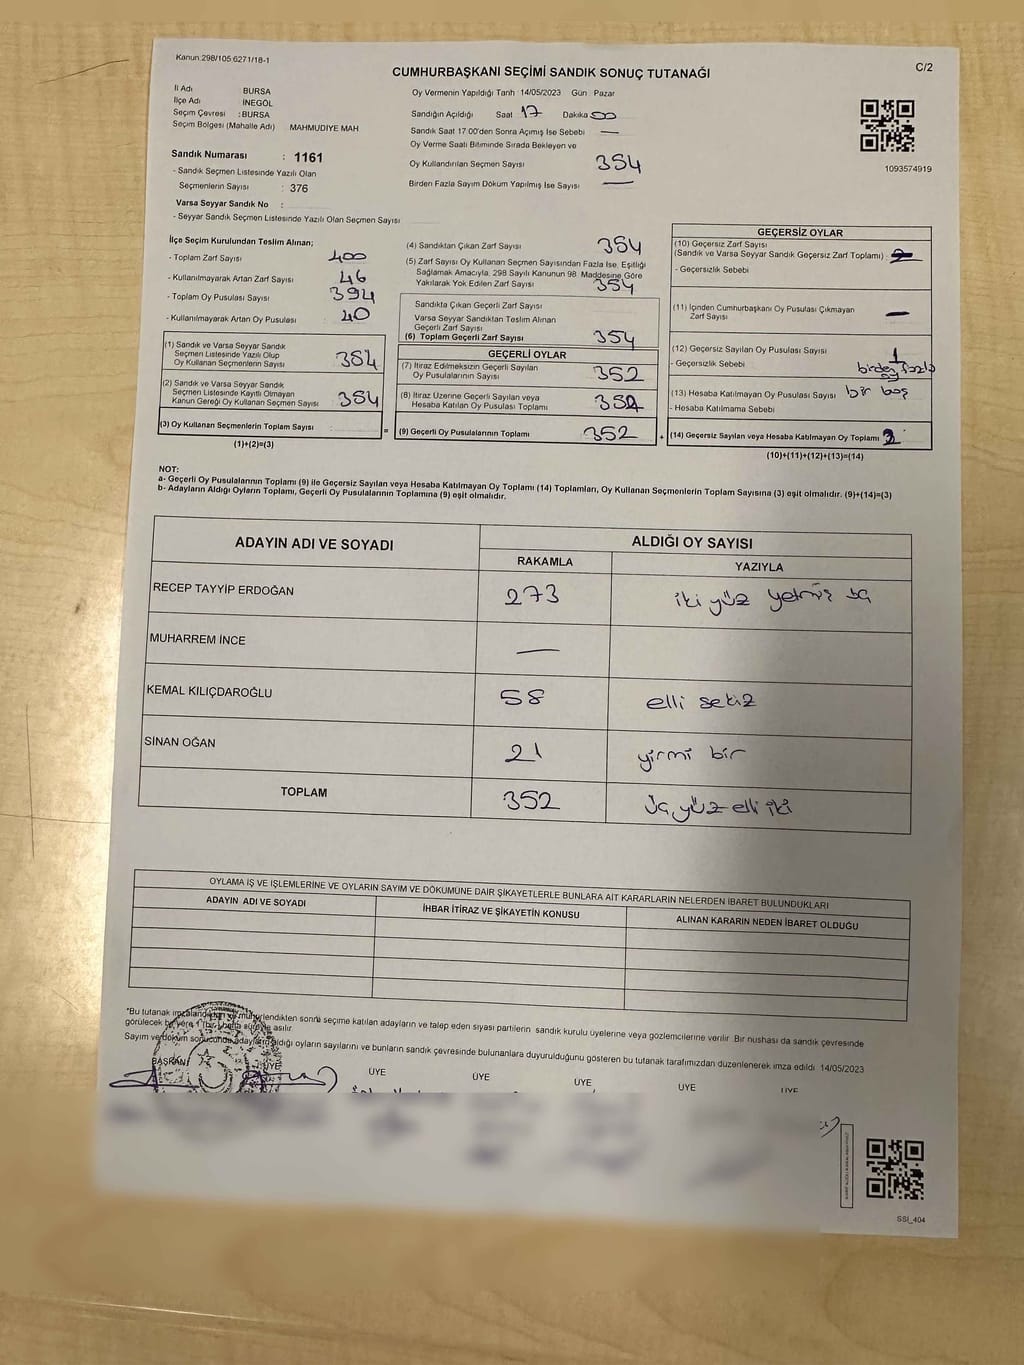 Kanun:298/105 6271/18-1
C/2
CUMHURBAŞKANI SEÇİMİ SANDIK SONUÇ TUTANAĞI
İl Adı BURSA
İlçe Adı İNEGÖL
Seçim Çevresi : BURSA
Seçim Bölgesi (Mahalle Adı) MAHMUDIYE MAH
Sandık Numarası : 1161
- Sandık Seçmen Listesinde Yazılı Olan
Seçmenlerin Sayısı : 376
Varsa Seyyar Sandık No :
- Seyyar Sandık Seçmen Listesinde Yazılı Olan Seçmen Sayısı
Oy Vermenin Yapıldığı Tarih 14/05/2023 Gün Pazar
Sandığın Açıldığı Saat 17 Dakika 00
Sandık Saat 17.00'den Sonra Açımış İse Sebebi —
Oy Verme Saati Bitiminde Sırada Bekleyen ve
Oy Kullandırılan Seçmen Sayısı 354
Birden Fazla Sayım Döküm Yapılmış İse Sayısı —
1093574919
İlçe Seçim Kurulundan Teslim Alınan;
- Toplam Zarf Sayısı 400
- Kullanılmayarak Artan Zarf Sayısı 46
- Toplam Oy Pusulası Sayısı 394
- Kullanılmayarak Artan Oy Pusulası 40
(1) Sandık ve Varsa Seyyar Sandık
Seçmen Listesinde Yazılı Olup
Oy Kullanan Seçmenlerin Sayısı 354
(2) Sandık ve Varsa Seyyar Sandık
Seçmen Listesinde Kayıtlı Olmayan
Kanun Gereği Oy Kullanan Seçmen Sayısı 354
(3) Oy Kullanan Seçmenlerin Toplam Sayısı :
(1)+(2)=(3)
(4) Sandıktan Çıkan Zarf Sayısı 354
(5) Zarf Sayısı Oy Kullanan Seçmen Sayısından Fazla İse, Eşitliği
Sağlamak Amacıyla, 298 Sayılı Kanunun 98. Maddesine Göre
Yakılarak Yok Edilen Zarf Sayısı 354
Sandıkta Çıkan Geçerli Zarf Sayısı
Varsa Seyyar Sandıktan Teslim Alınan
Geçerli Zarf Sayısı
(6) Toplam Geçerli Zarf Sayısı 354
GEÇERLİ OYLAR
(7) İtiraz Edilmeksizin Geçerli Sayılan
Oy Pusulalarının Sayısı 352
(8) İtiraz Üzerine Geçerli Sayılan veya
Hesaba Katılan Oy Pusulası Toplamı 352
= (9) Geçerli Oy Pusulalarının Toplamı 352 +
GEÇERSİZ OYLAR
(10) Geçersiz Zarf Sayısı
(Sandık ve Varsa Seyyar Sandık Geçersiz Zarf Toplamı) 2
- Geçersizlik Sebebi
(11) İçinden Cumhurbaşkanı Oy Pusulası Çıkmayan
Zarf Sayısı —
(12) Geçersiz Sayılan Oy Pusulası Sayısı 1
- Geçersizlik Sebebi birden fazla
oy
(13) Hesaba Katılmayan Oy Pusulası Sayısı bir boş
- Hesaba Katılmama Sebebi
(14) Geçersiz Sayılan veya Hesaba Katılmayan Oy Toplamı 2
(10)+(11)+(12)+(13)=(14)
NOT:
a- Geçerli Oy Pusulalarının Toplamı (9) ile Geçersiz Sayılan veya Hesaba Katılmayan Oy Toplamı (14) Toplamları, Oy Kullanan Seçmenlerin Toplam Sayısına (3) eşit olmalıdır. (9)+(14)=(3)
b- Adayların Aldığı Oyların Toplamı, Geçerli Oy Pusulalarının Toplamına (9) eşit olmalıdır.
ADAYIN ADI VE SOYADI ALDIĞI OY SAYISI
RAKAMLA YAZIYLA
RECEP TAYYİP ERDOĞAN 273 iki yüz yetmiş üç
MUHARREM İNCE —
KEMAL KILIÇDAROĞLU 58 elli sekiz
SİNAN OĞAN 21 yirmi bir
TOPLAM 352 üç yüz elli iki
OYLAMA İŞ VE İŞLEMLERİNE VE OYLARIN SAYIM VE DÖKÜMÜNE DAİR ŞİKAYETLERLE BUNLARA AİT KARARLARIN NELERDEN İBARET BULUNDUKLARI
ADAYIN ADI VE SOYADI İHBAR İTİRAZ VE ŞİKAYETİN KONUSU ALINAN KARARIN NEDEN İBARET OLDUĞU
"Bu tutanak imzalandıktan ve mühürlendikten sonra seçime katılan adayların ve talep eden siyasi partilerin sandık kurulu üyelerine veya gözlemcilerine verilir. Bir nushası da sandık çevresinde
görülecek bir yere 1 (bir) hafta süreyle asılır.
Sayım ve döküm sonucunda adayların aldığı oyların sayılarını ve bunların sandık çevresinde bulunanlara duyurulduğunu gösteren bu tutanak tarafımızdan düzenlenerek imza edildi. 14/05/2023
BAŞKAN ÜYE ÜYE ÜYE ÜYE ÜYE ÜYE
SSI_404